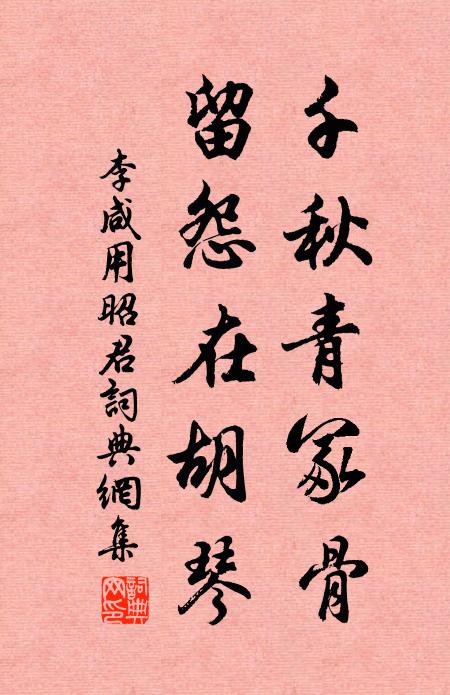 千秋青冢骨
留怨在胡琴
李咸用昭君詞典網集
詞典網印